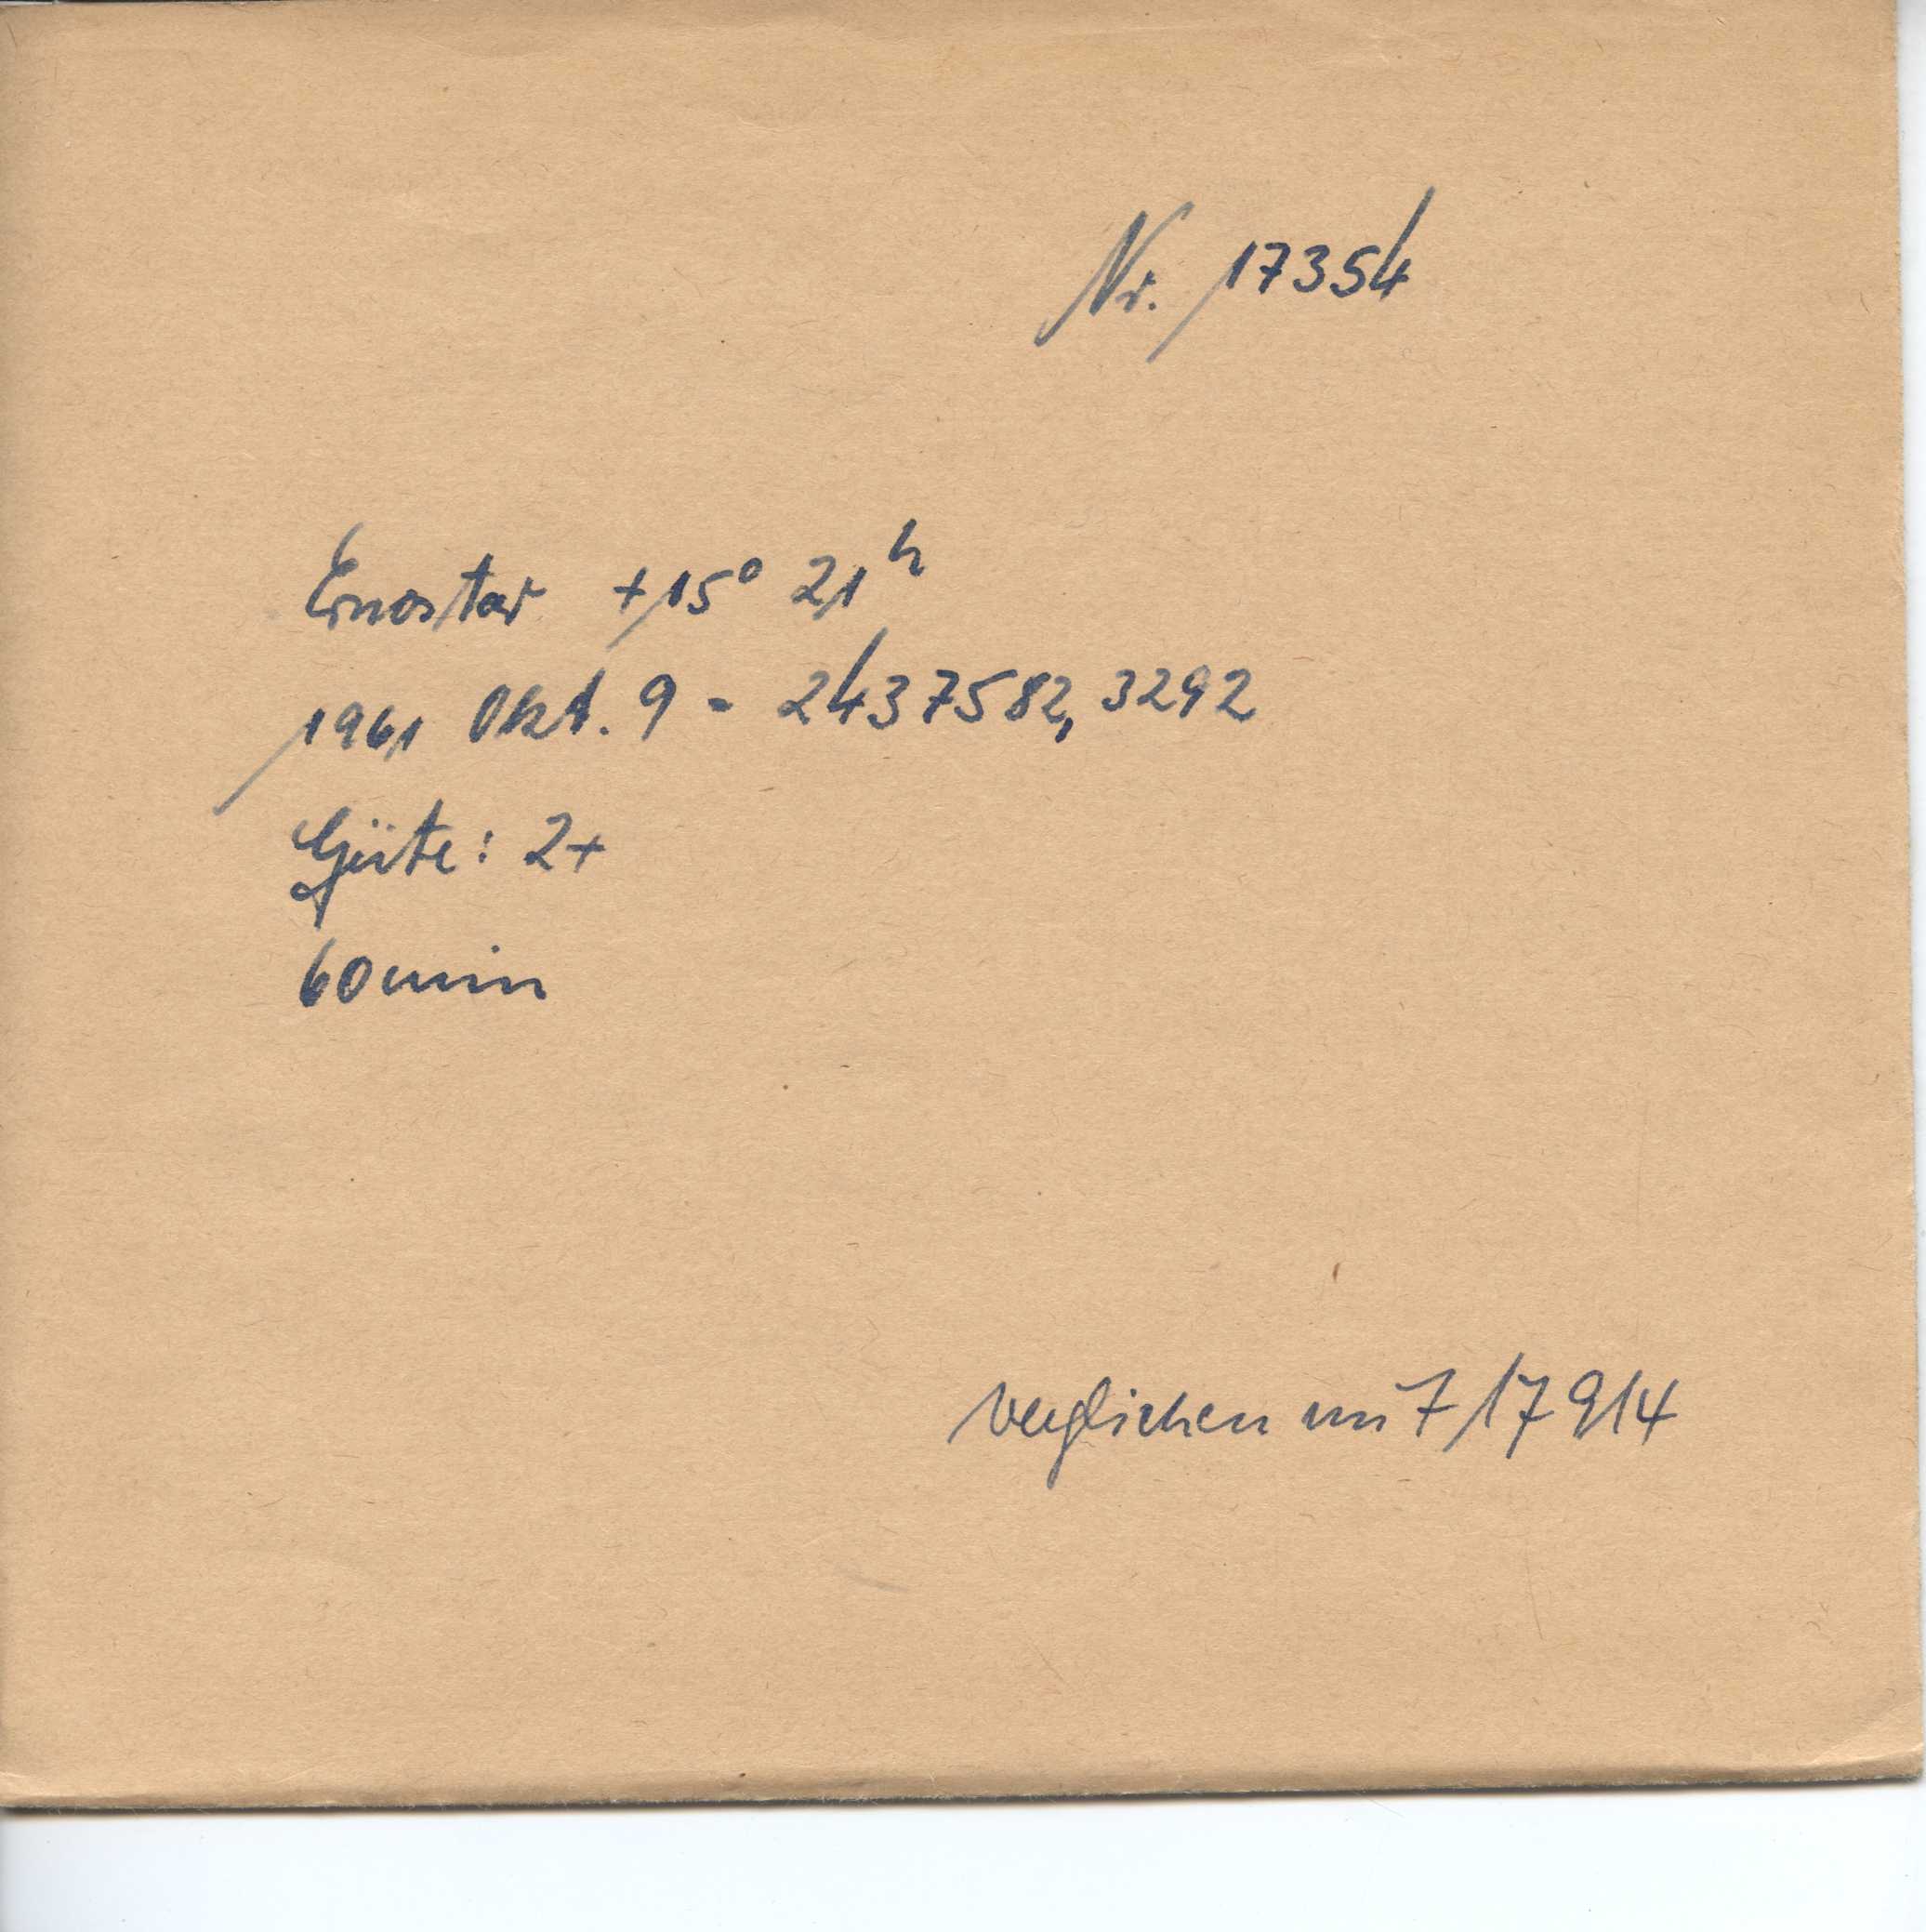 Nr. 17354
Ernostar +15° 21h
1961 Okt. 9 = 2437582,3292
Güte: 2+
60min
verglichen mit 17914